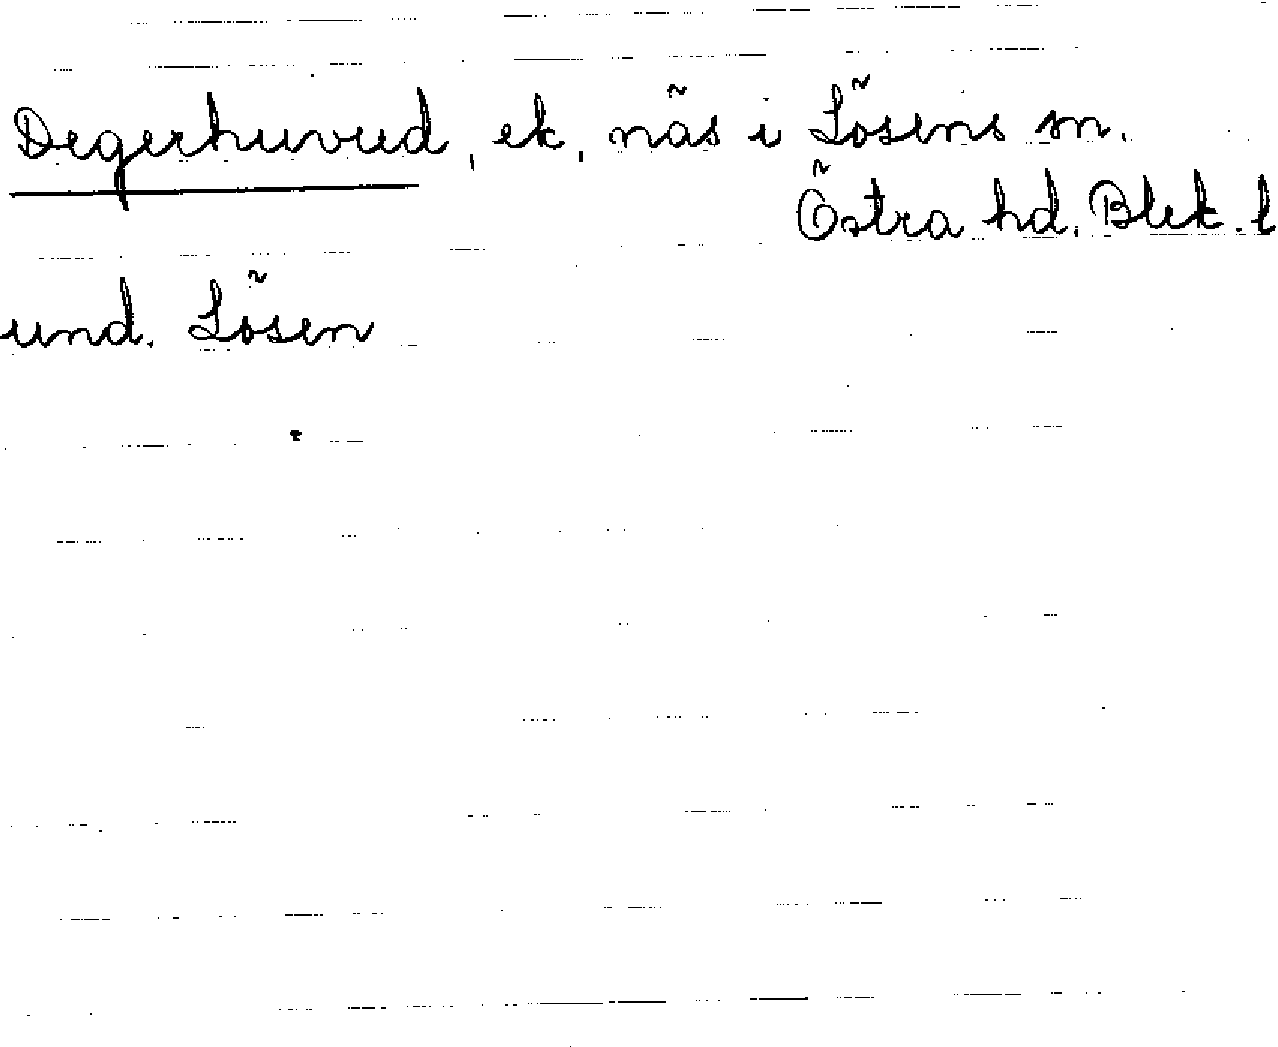 Degerhuvud, ek, näs i Lösens sn.
Östra hd. Blek. l
und. Lösen